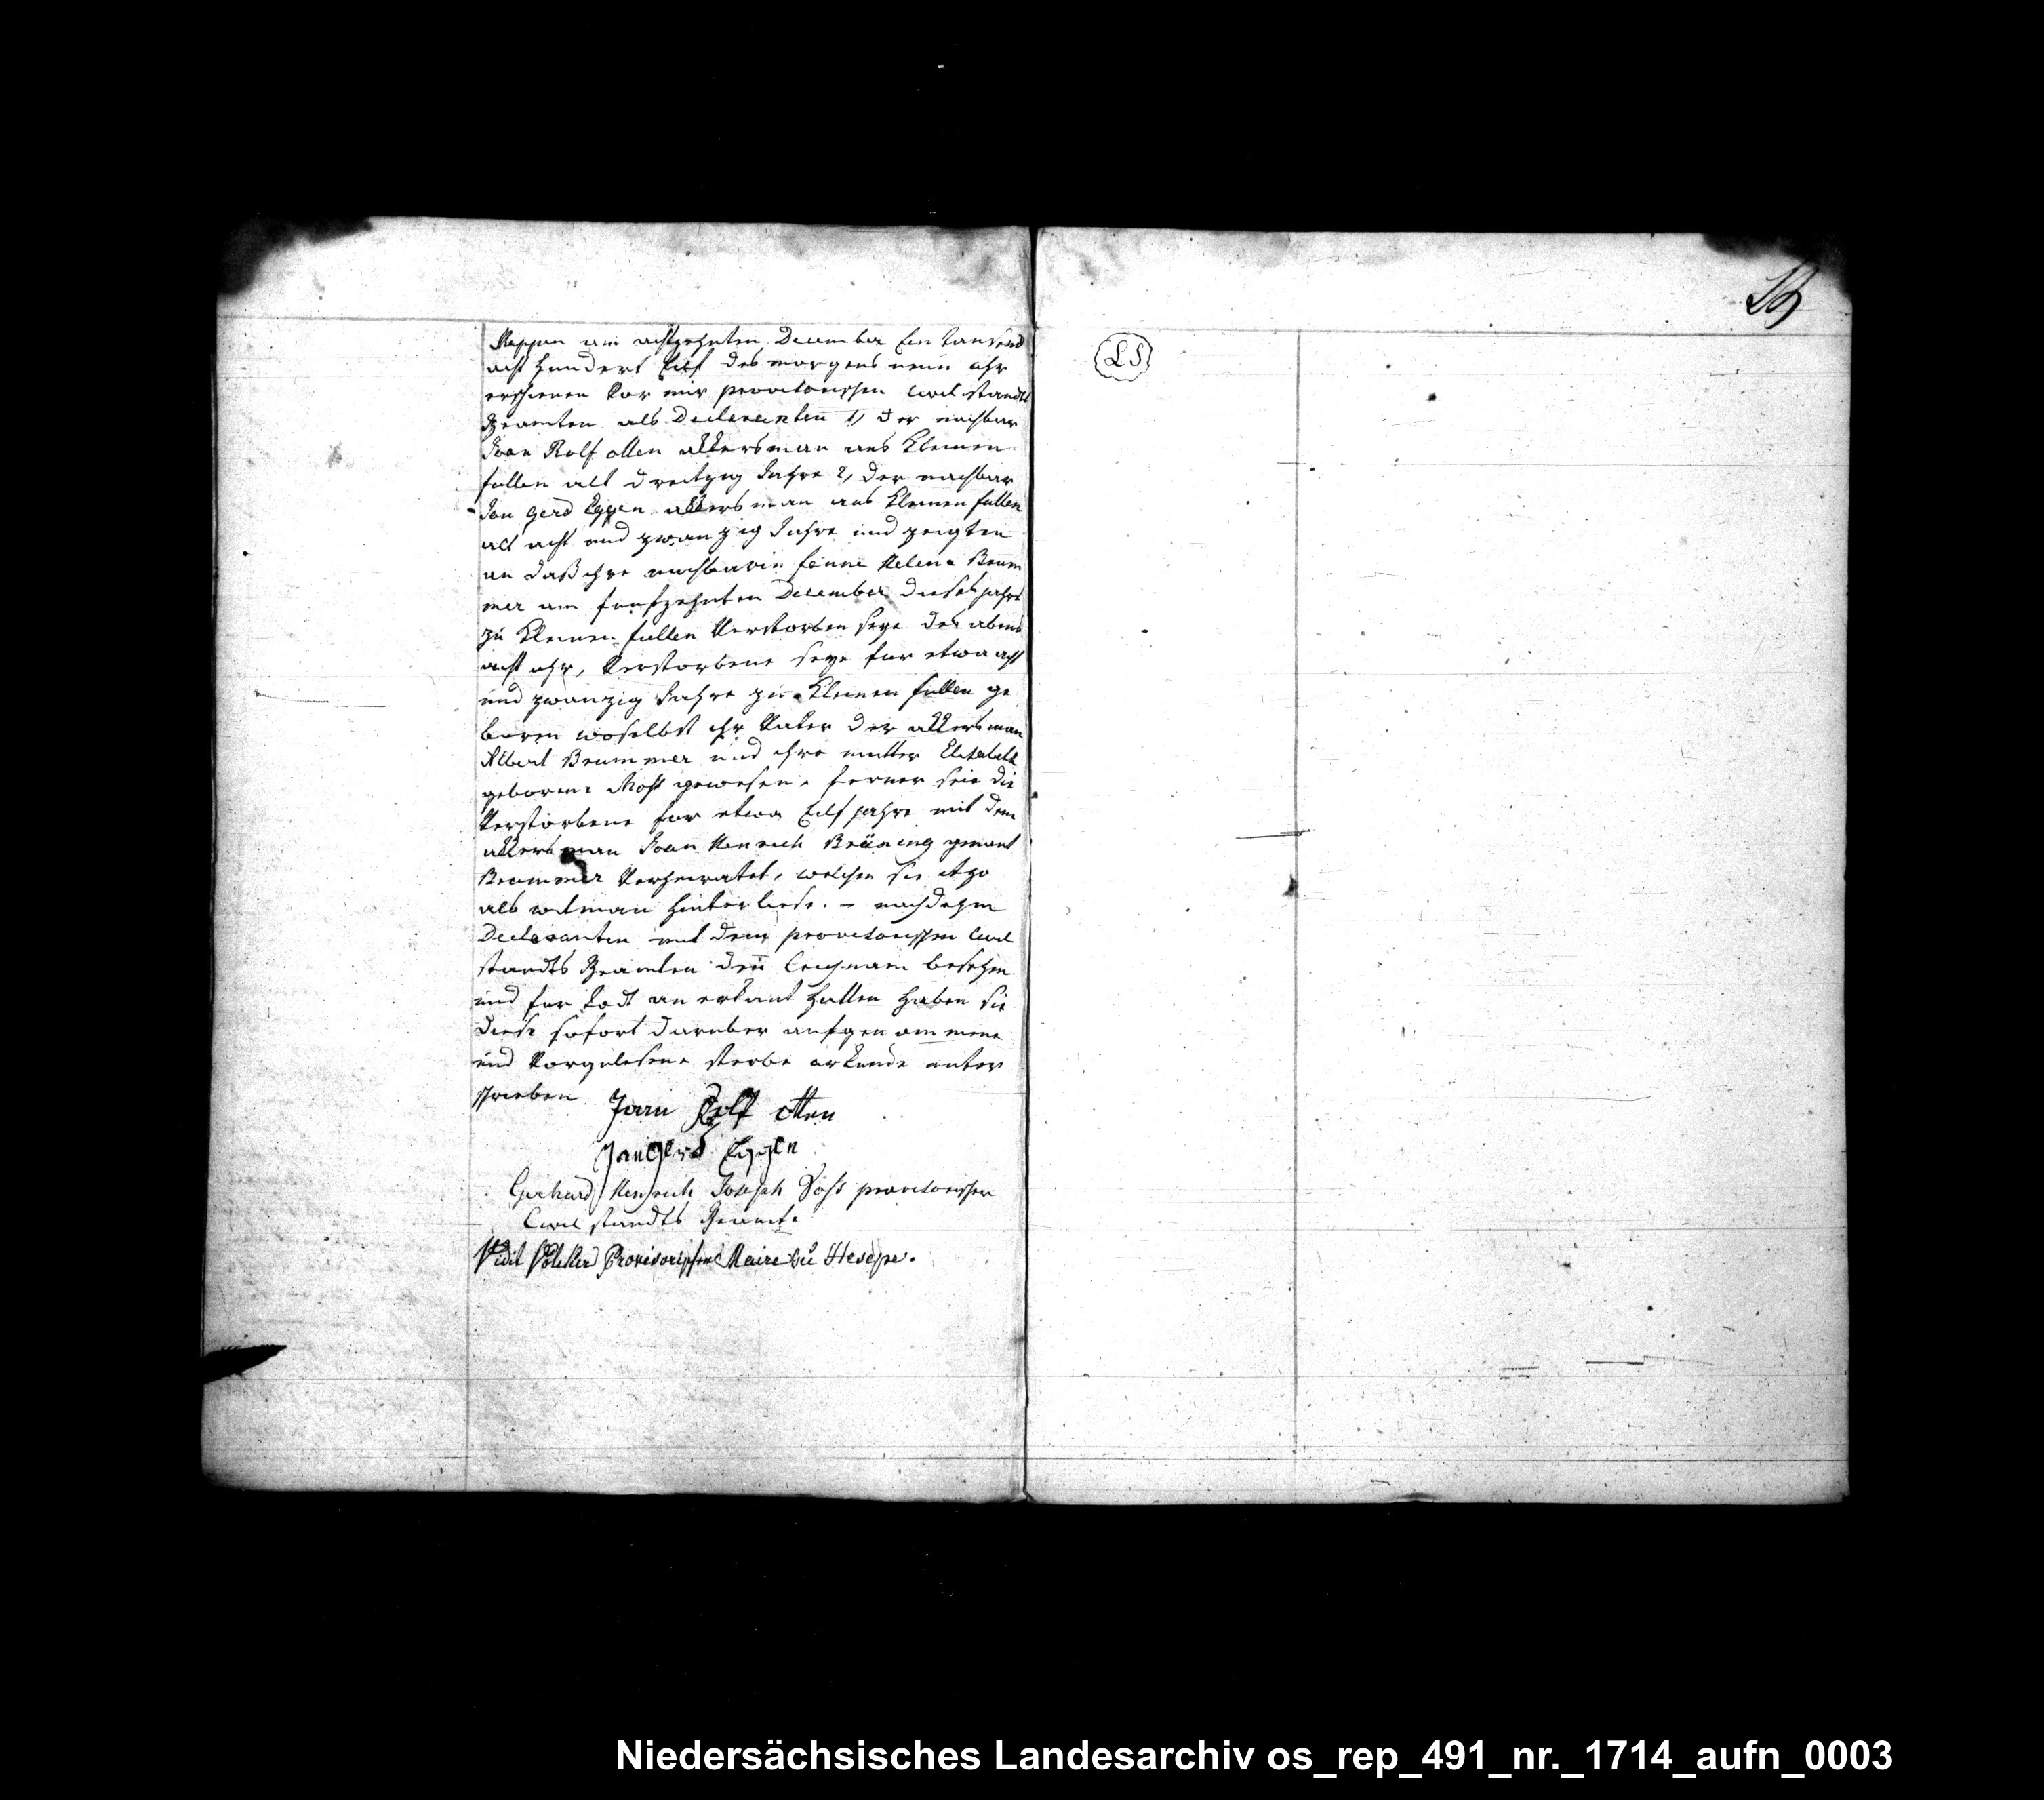 Meppen am achtzehnten December Ein tausend
acht Hundert Eilf des morgens neun uhr
erschienen vor mir provisorischen Civil standts
Beamten als Declaranten 1, der nachbar
Joan Rolf otten akkersman aus Kleinen
fullen alt dreitzig Jahre 2, der nachbar
Jan Gerd Eggen akkersman aus Kleinen fullen
alt acht und zwanzig Jahre und zeigten
an daß ihre nachbarin fenne Helena Brum
mer am funfzehnten December dieses jahrs
zu Kleinen fullen Verstorben seye des abens
acht uhr, Verstorbene seye fur etwa acht
und zwanzig Jahre zu Kleinen fullen ge
boren woselbst ihr Vater der akkersman
Albert Brummer und ihre mutter Elisabeth
geborene gewesen. ferner seie die
Verstorbene for etwa Eilf jahre mit dem
akkersman Joan Henrich Brüning genant
Brummer Verheiratet, welchen sie itzo
als witman hinterliese. – nachdehm
Declaranten mit dem provisorischen Civil
standts Beamten den Leichnam besehen
und fur todt an erkant hatten haben sie
diese sofort daruber aufgenommene
und Vorgelesene sterbe urkunde unter
schrieben
Joan Rolf otten
Jan Gerd Eggen
Gerhard Henrich Joseph provisorischer
Civil standts Beamte
Vidit Völcker Provisorischer Maire zu Hesepe.
LS
Niedersächsisches Landesarchiv os_rep_491_nr._1714_aufn_0003